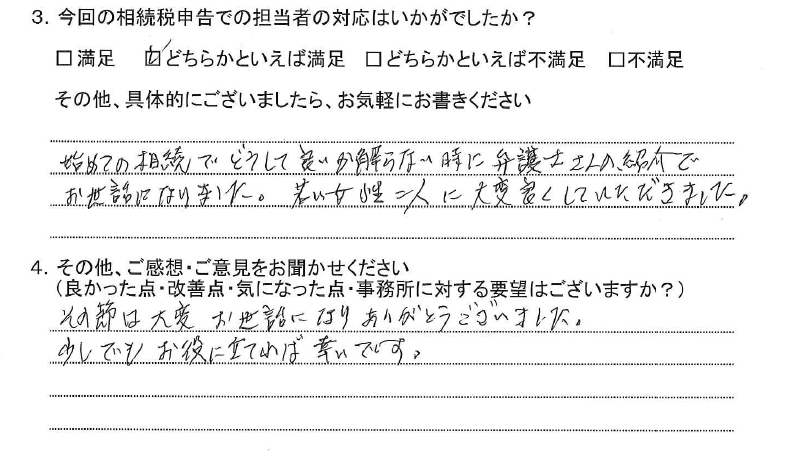 3．今回の相続税申告での担当者の対応はいかがでしたか？
□満足　☑どちらかといえば満足　□どちらかといえば不満足　□不満足
その他、具体的にございましたら、お気軽にお書きください
始めての相続でどうして良いか解らない時に弁護士さんの紹介で
お世話になりました。若い女性二人に大変良くしていただきました。
4．その他、ご感想・ご意見をお聞かせください
（良かった点・改善点・気になった点・事務所に対する要望はございますか？）
その節は大変お世話になりありがとうございました。
少しでもお役に立てれば幸いです。